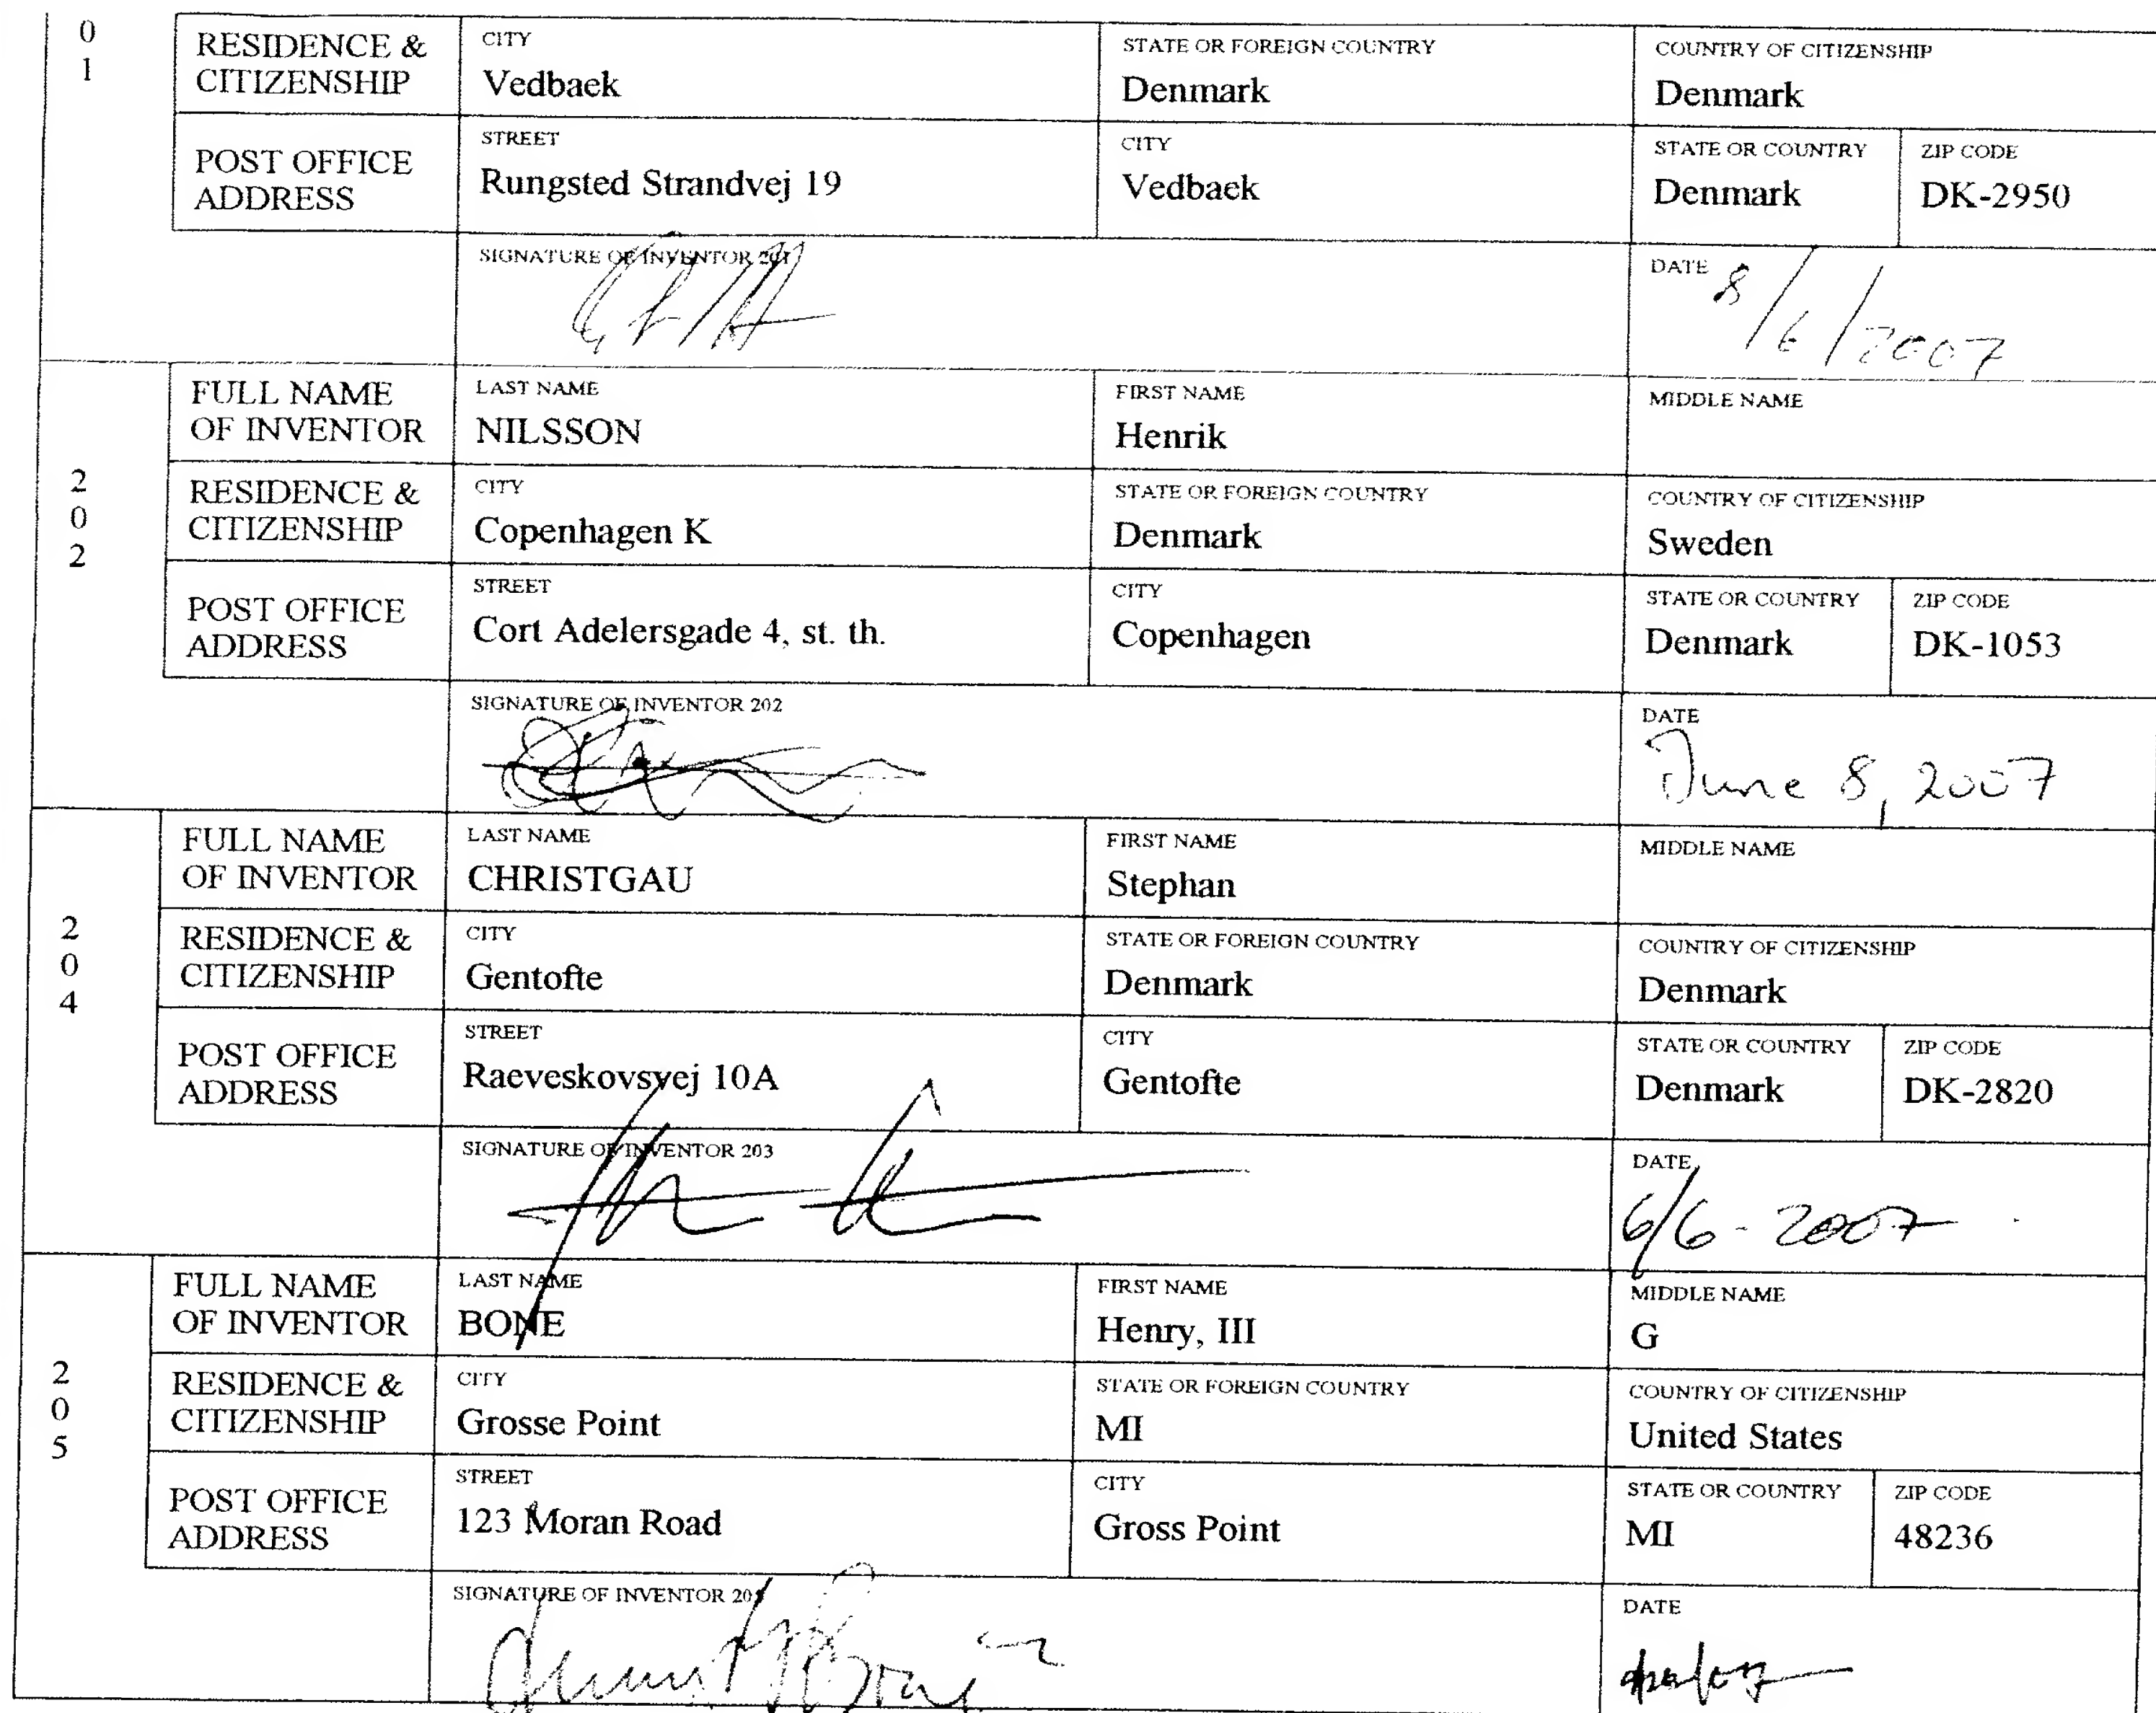 0
1
RESIDENCE & CITIZENSHIP
CITY
Vedbaek
STATE OR FOREIGN COUNTRY
Denmark
COUNTRY OF CITIZENSHIP
Denmark
POST OFFICE ADDRESS
STREET
Rungsted Strandvej 19
CITY
Vedbaek
STATE OR COUNTRY
Denmark
ZIP CODE
DK-2950
SIGNATURE OF INVENTOR 201
DATE
8/6/2007
2
0
2
FULL NAME OF INVENTOR
LAST NAME
NILSSON
FIRST NAME
Henrik
MIDDLE NAME
RESIDENCE & CITIZENSHIP
CITY
Copenhagen K
STATE OR FOREIGN COUNTRY
Denmark
COUNTRY OF CITIZENSHIP
Sweden
POST OFFICE ADDRESS
STREET
Cort Adelersgade 4, st. th.
CITY
Copenhagen
STATE OR COUNTRY
Denmark
ZIP CODE
DK-1053
SIGNATURE OF INVENTOR 202
DATE
June 8, 2007
2
0
4
FULL NAME OF INVENTOR
LAST NAME
CHRISTGAU
FIRST NAME
Stephan
MIDDLE NAME
RESIDENCE & CITIZENSHIP
CITY
Gentofte
STATE OR FOREIGN COUNTRY
Denmark
COUNTRY OF CITIZENSHIP
Denmark
POST OFFICE ADDRESS
STREET
Raeveskovsvej 10A
CITY
Gentofte
STATE OR COUNTRY
Denmark
ZIP CODE
DK-2820
SIGNATURE OF INVENTOR 203
DATE
6/6-2007
2
0
5
FULL NAME OF INVENTOR
LAST NAME
BONE
FIRST NAME
Henry, III
MIDDLE NAME
G
RESIDENCE & CITIZENSHIP
CITY
Grosse Point
STATE OR FOREIGN COUNTRY
MI
COUNTRY OF CITIZENSHIP
United States
POST OFFICE ADDRESS
STREET
123 Moran Road
CITY
Gross Point
STATE OR COUNTRY
MI
ZIP CODE
48236
SIGNATURE OF INVENTOR
DATE